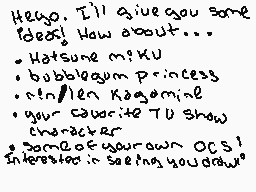 Heyo. I'll give you some
ideas! How about...
• Hatsune miku
• bubblegum princess
• rin/len Kagamine
• your favorite TV show
character
• some of your own OCS!
Interested in seeing you draw!